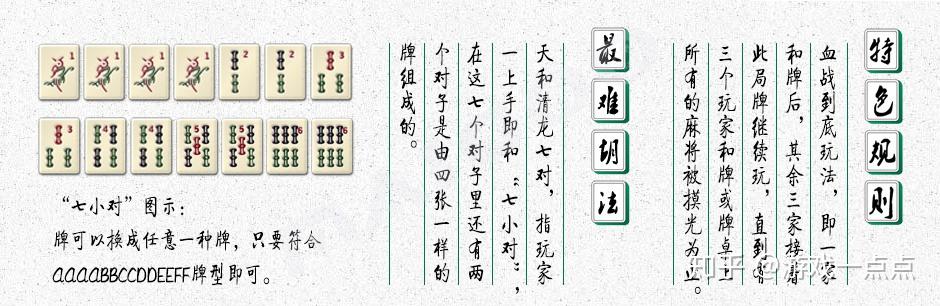 特色规则
血战到底玩法，即一家
和牌后，其余三家接着
此局牌继续玩，直到有
三个玩家和牌或牌桌上
所有的麻将被摸光为止。
最难胡法
天和清龙七对，指玩家
一上手即和“七小对”，
在这七个对子里还有两
个对子是由四张一样的
牌组成的。
1 1 1 1 2 2 3
3 4 4 5 5 6 6
“七小对”图示：
牌可以换成任意一种牌，只要符合
AAAABBCCDDEEFF牌型即可。
知乎 @游戏一点点